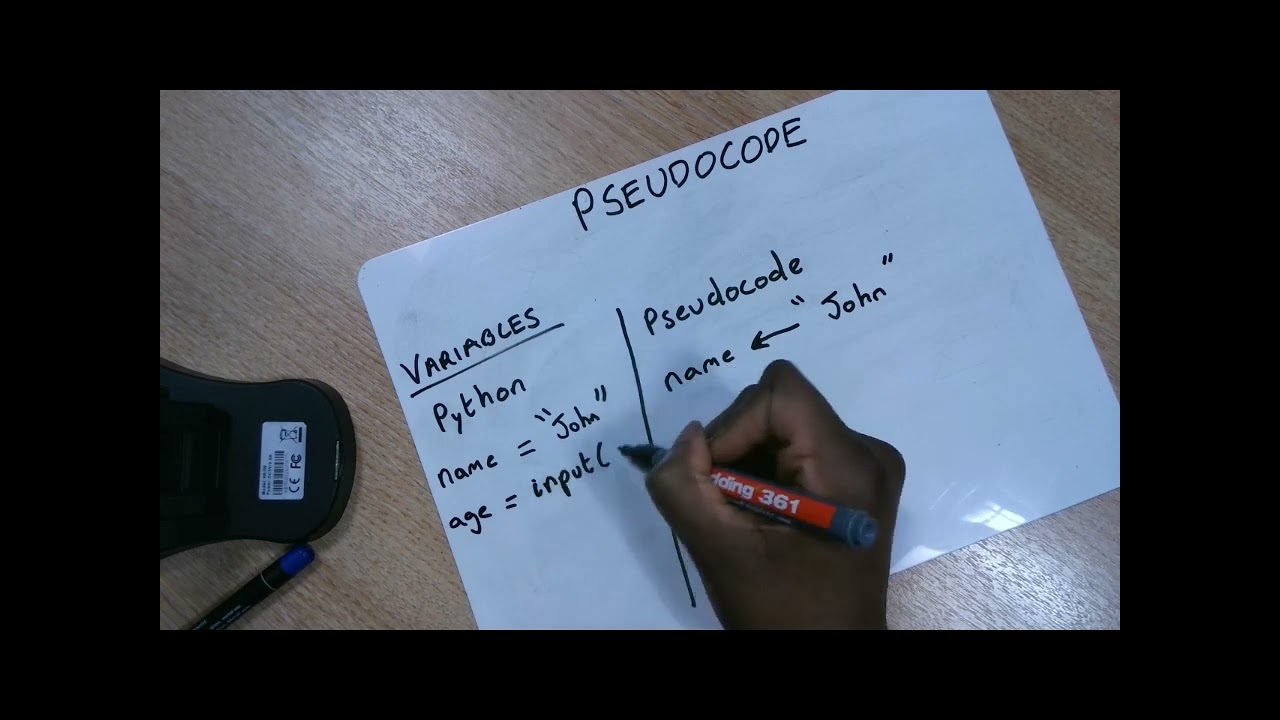 PSEUDOCODE
VARIABLES
Python
name = "John"
age = input(
Pseudocode
name ← "John"
dding 361
CE FC